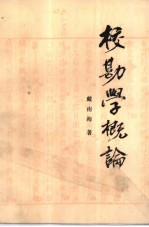 校勘學概論
戴南海 著